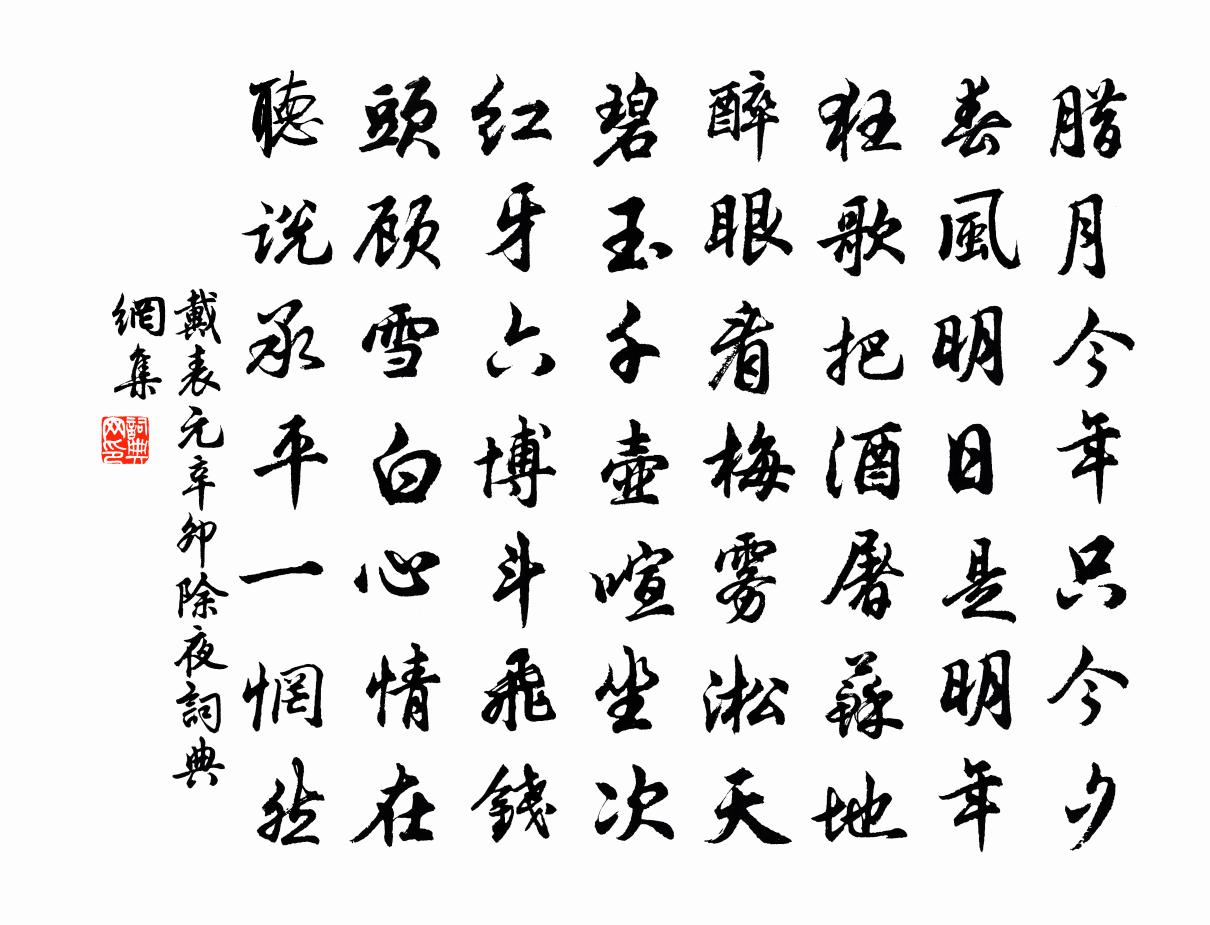 腊月今年只今夕
春風明日是明年
狂歌把酒屠蘇地
醉眼看梅雾淞天
碧玉千壺喧坐次
红牙六博斗飛錢
頭顾雪白心情在
聽説承平一惘然
戴表元辛卯除夜詞典
網集
詞典
网印